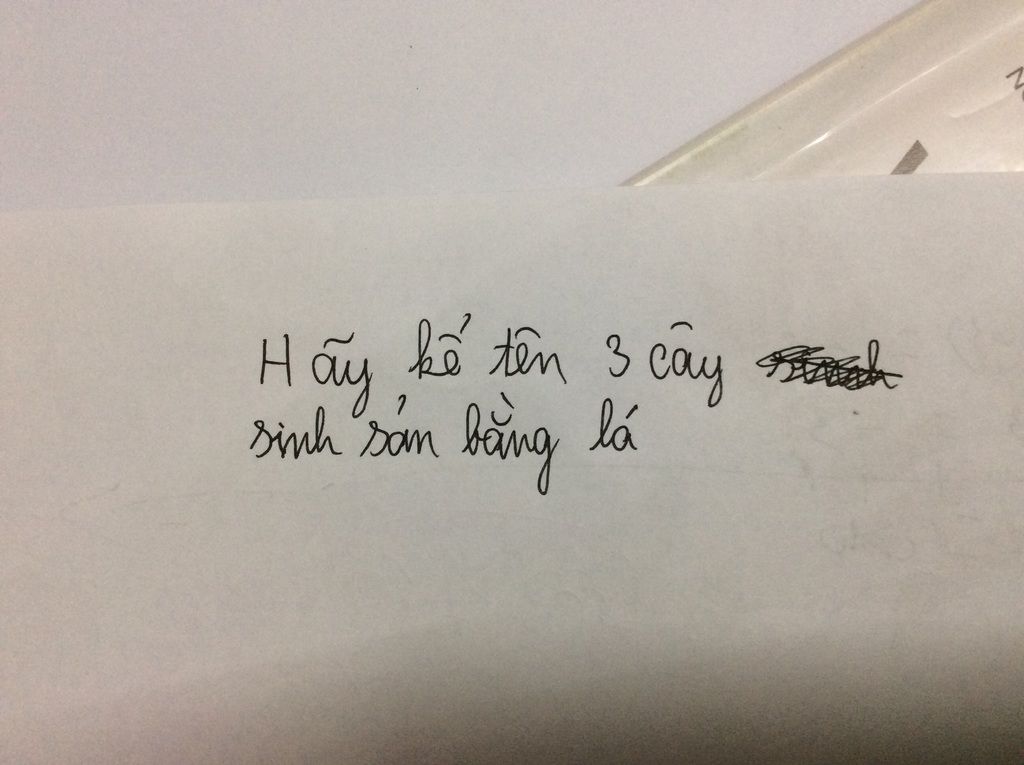 Hãy kể tên 3 cây
sinh sản bằng lá